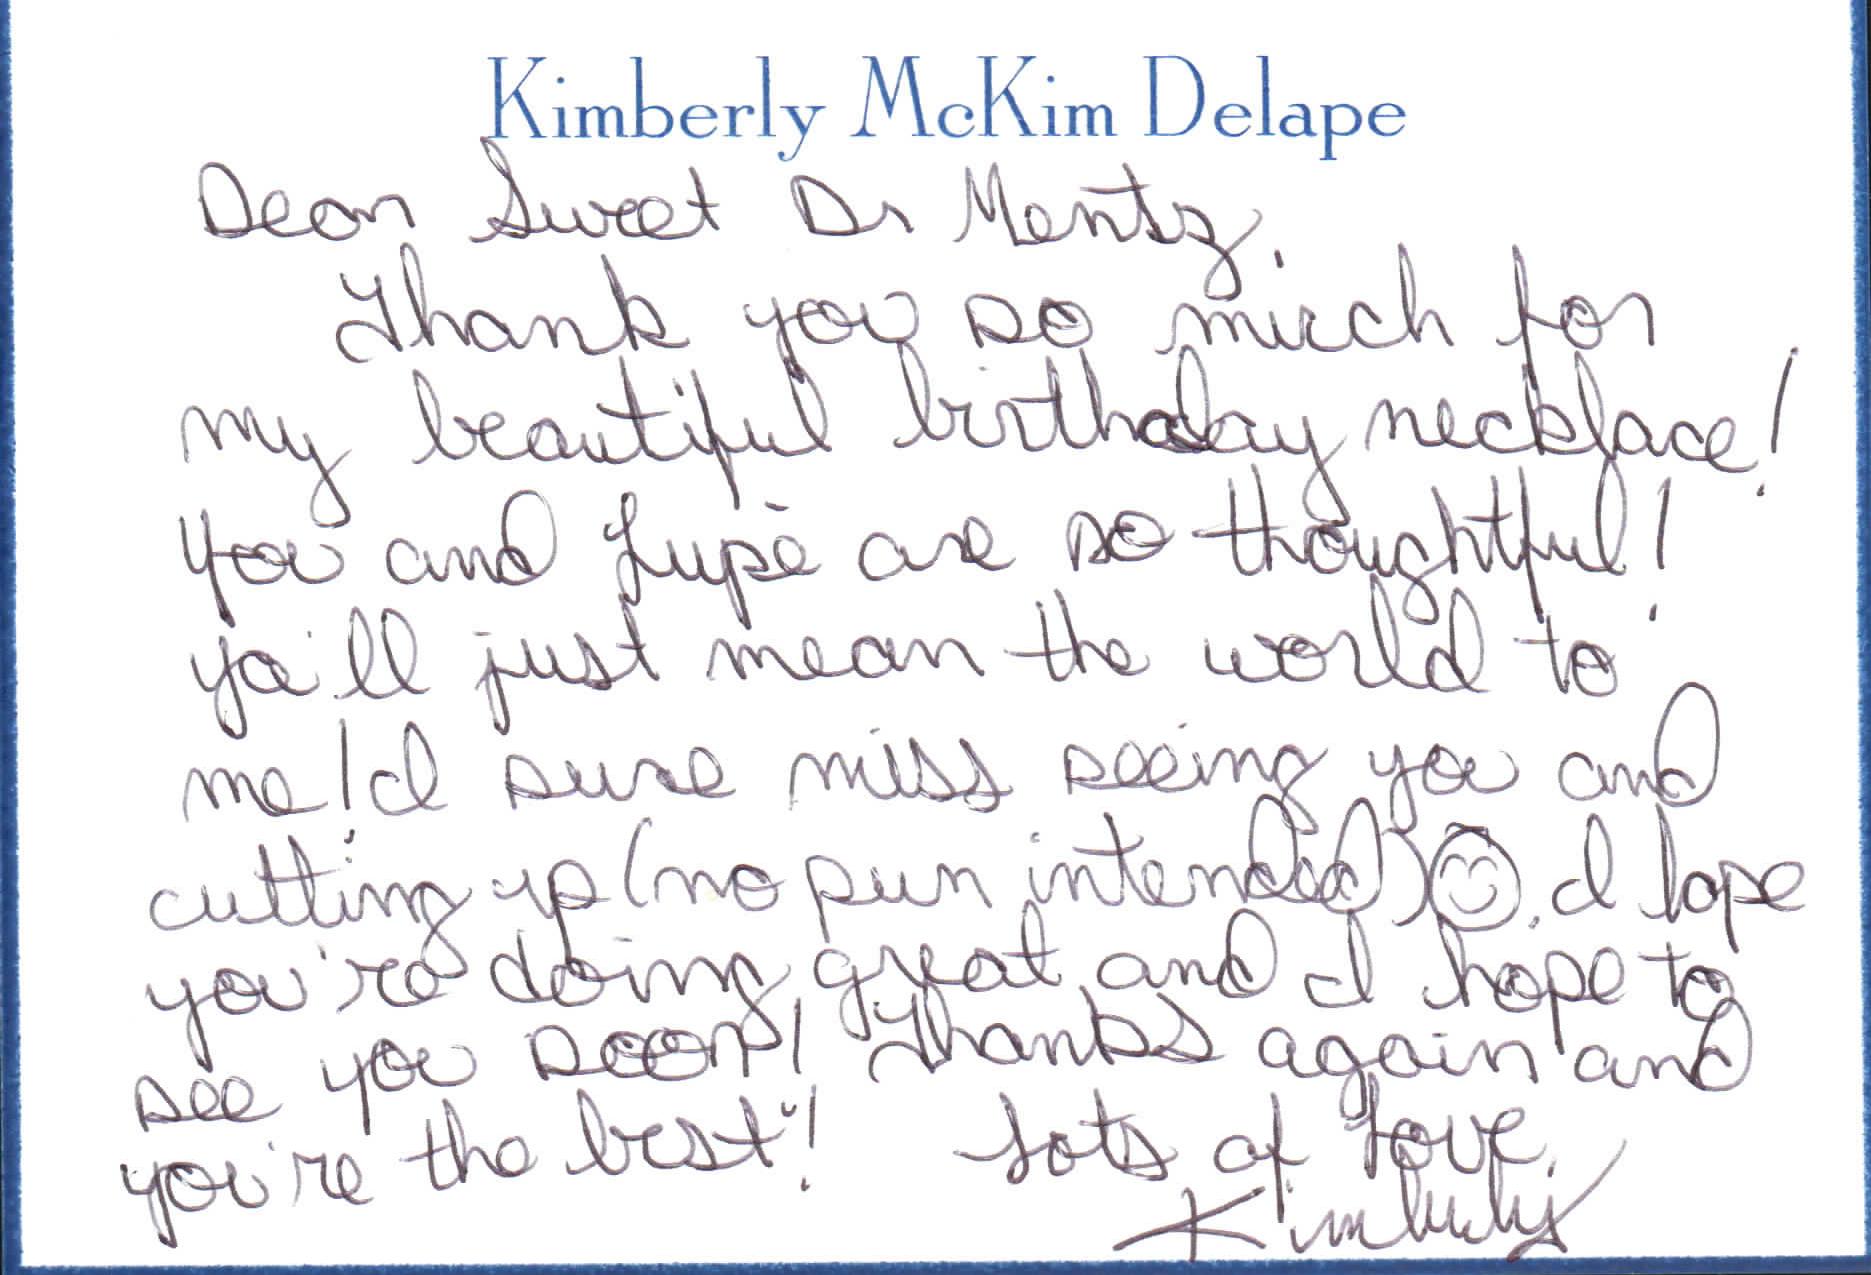 Kimberly McKim Delape
Dear Sweet Dr Mentz,
Thank you so much for
my beautiful birthday necklace!
You and Lupè are so thoughtful!
ya'll just mean the world to
me! I sure miss seeing you and
cutting up (no pun intended) ☺. I hope
you're doing great and I hope to
see you soon! Thanks again and
you're the best! Lots of Love,
Kimberly